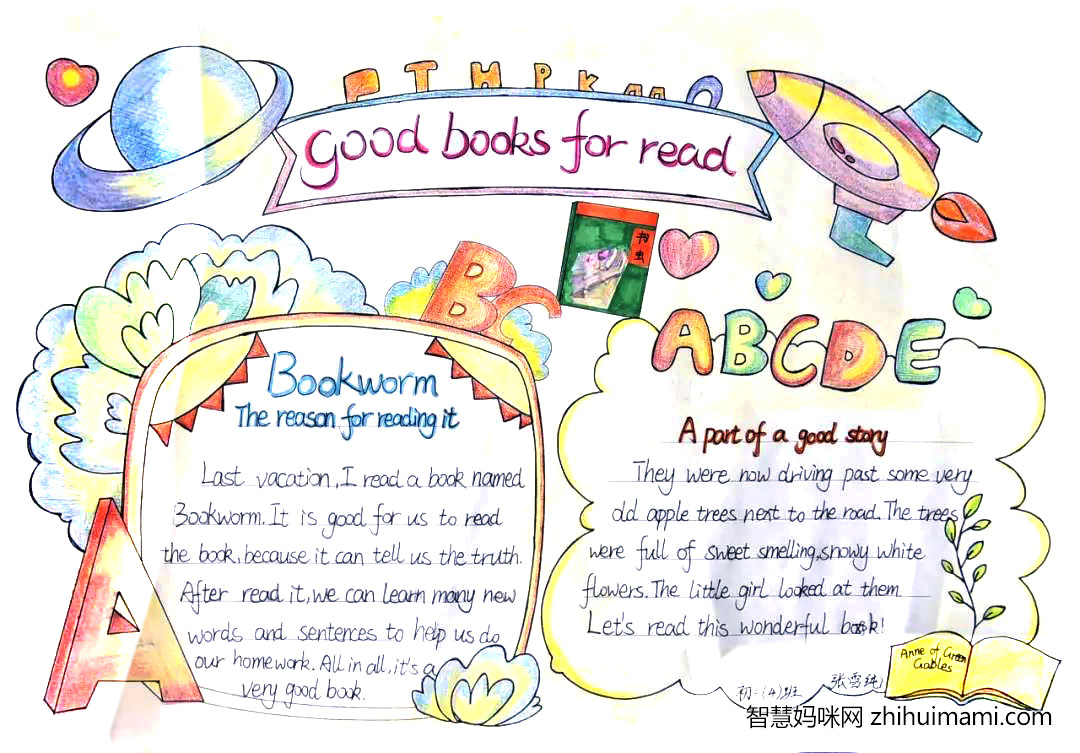 FTHPK
good books for read
书虫
BC
ABCDE
Bookworm
The reason for reading it
Last vacation, I read a book named
Bookworm. It is good for us to read
the book, because it can tell us the truth.
After read it, we can learn many new
words and sentences to help us do
our homework. All in all, it's a
very good book.
A
A part of a good story
They were now driving past some very
old apple trees next to the road. The trees
were full of sweet smelling, snowy white
flowers. The little girl looked at them
Let's read this wonderful book!
Anne of Green
Gables
初二(4)班 张雪纯
智慧妈咪网 zhihuimami.com